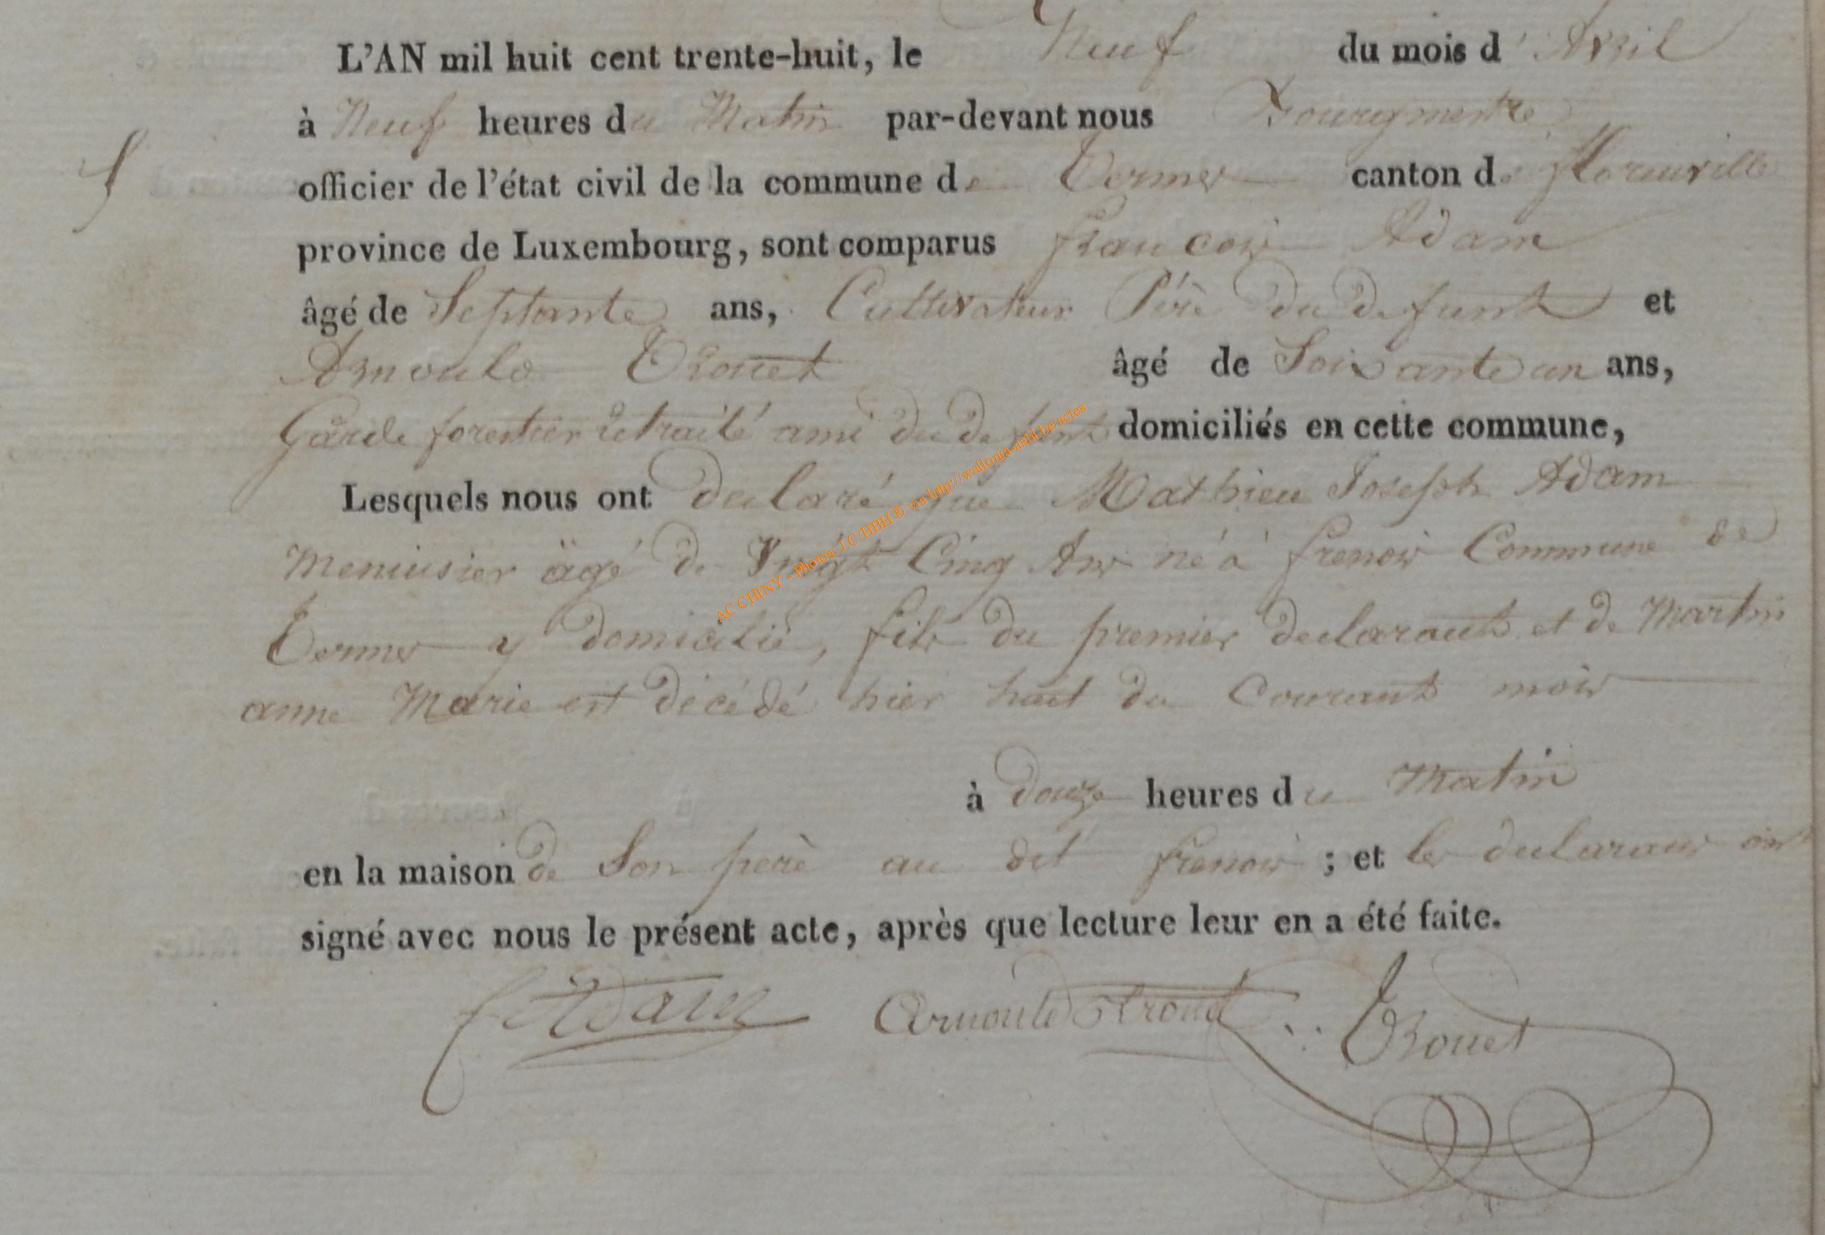 L'AN mil huit cent trente-huit, le Neuf du mois d'Avril
à Neuf heures du Matin par-devant nous Bourgmestre
officier de l'état civil de la commune de Termes canton de Florenville
province de Luxembourg, sont comparus Francois Adam
âgé de Septante ans, Cultivateur Pére du defunt et
Arnould Trouet âgé de Soixante un ans,
Garde forestier retraité ami du defunt domiciliés en cette commune,
Lesquels nous ont declaré que Mathieu Joseph Adam
Menuisier agé de Vingt Cinq Ans né à frenois Commune de
Termes y domicilié, fils du premier declarant et de Martin
anne Marie est décédé hier huit du Courant mois
à douze heures du Matin
en la maison de Son perè au dit frenois ; et les declarans ont
signé avec nous le présent acte, après que lecture leur en a été faite.
f Adam Arnould Trouet Trouet
AC CHINY - Photos J.C.HBH® on http://wallonia-asbl.be/actes